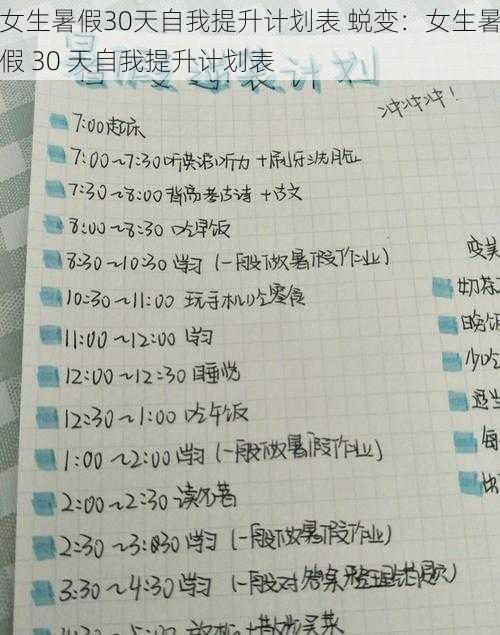 女生暑假30天自我提升计划表 蜕变：女生暑
假 30 天自我提升计划表
暑假逆袭计划
冲冲冲！
7:00起床
7:00~7:30听英语听力+刷牙洗脸
7:30~8:00背高考古诗+古文
8:00~8:30 吃早饭
8:30~10:30 学习 (一般做暑假作业)
10:30~11:00 玩手机吃零食
11:00~12:00 学习
12:00~12:30 睡觉
12:30~1:00 吃午饭
1:00~2:00 学习 (一般做暑假作业)
2:00~2:30 读名著
2:30~3:30 学习 (一般做暑假作业)
3:30~4:30 学习 (一般对答案整理错题)
变美
奶茶
晚饭
少吃
适当
每
出